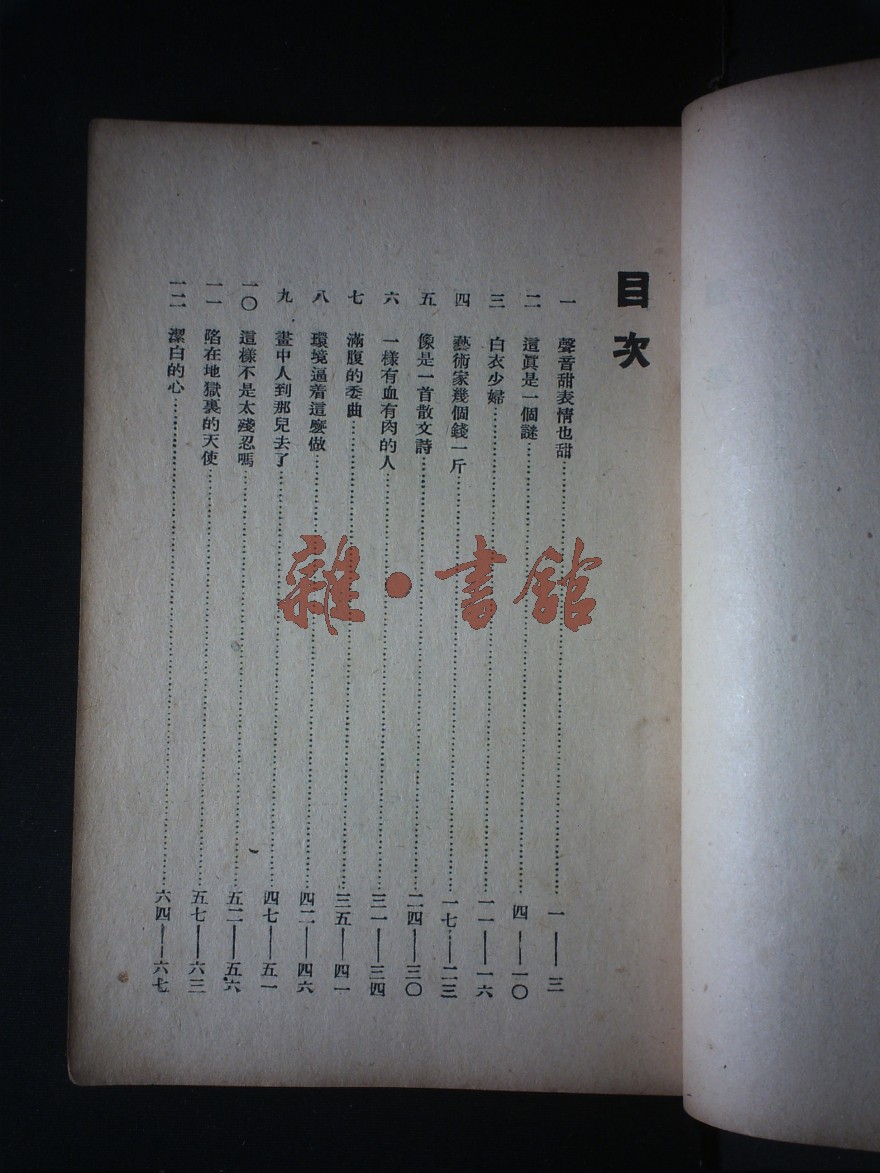 目次
一 聲音甜表情也甜……一——三
二 這眞是一個謎……四——一〇
三 白衣少婦……一一——一六
四 藝術家幾個錢一斤……一七——二三
五 像是一首散文詩……二四——三〇
六 一樣有血有肉的人……三一——三四
七 滿腹的委曲……三五——四一
八 環境逼着這麼做……四二——四六
九 畫中人到那兒去了……四七——五一
一〇 這樣不是太殘忍嗎……五二——五六
一一 陷在地獄裏的天使……五七——六三
一二 潔白的心……六四——六七
雜·書館